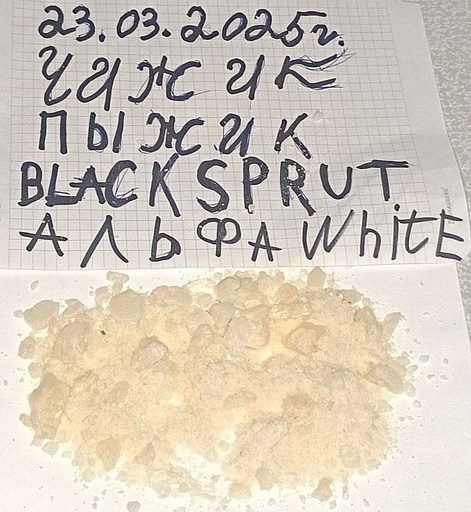 23.03.2025г.
ЧИЖИК
ПЫЖИК
BLACKSPRUT
АЛЬФА WhitE